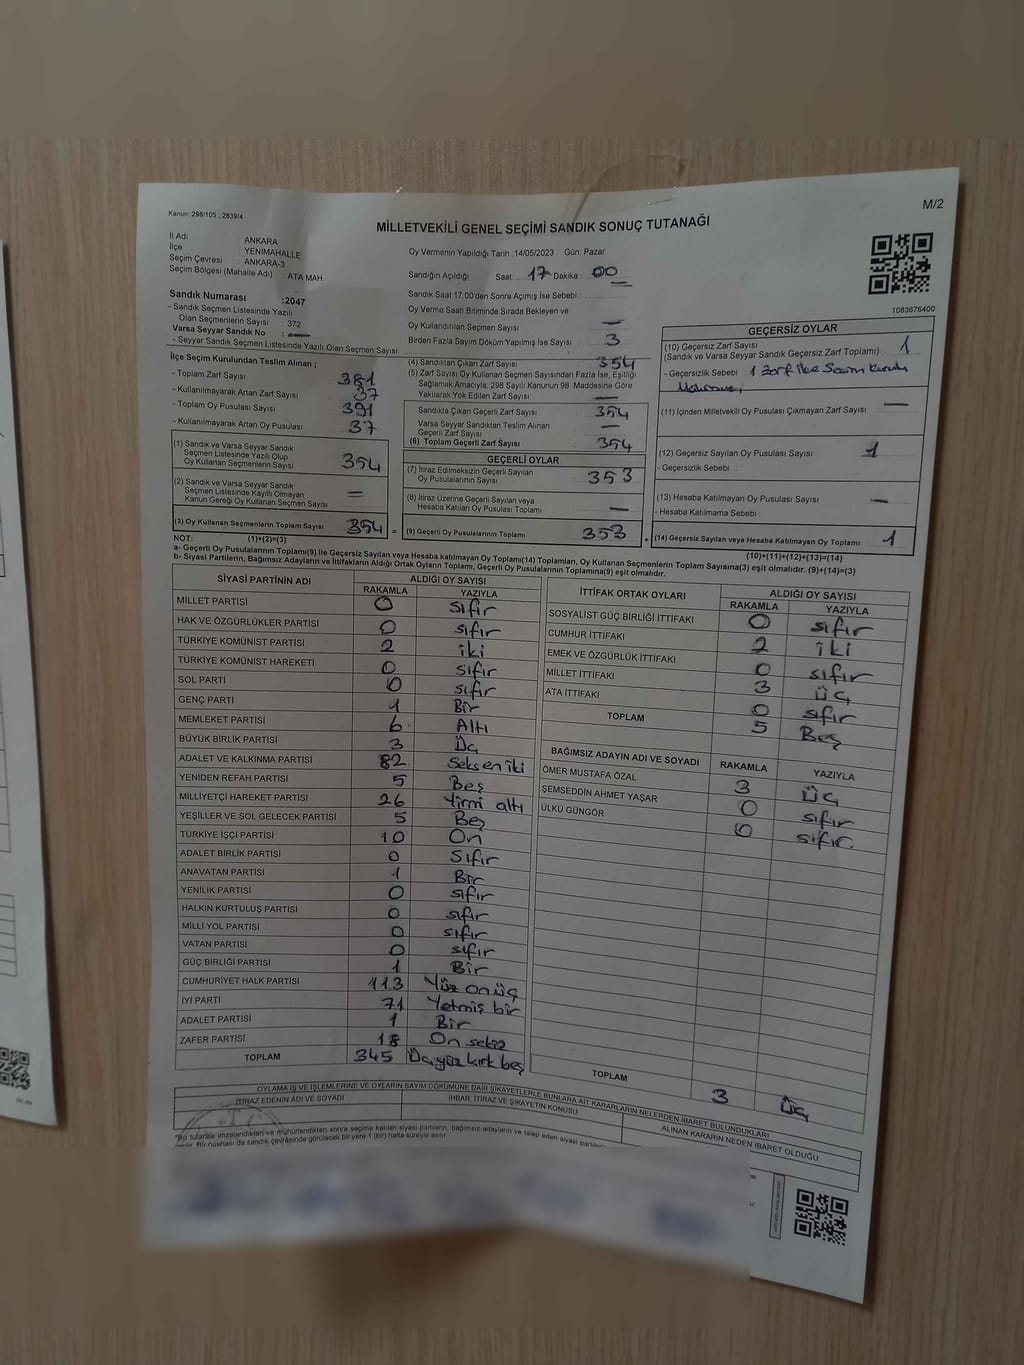 Kanun: 298/105 . 2839/4
M/2
MİLLETVEKİLİ GENEL SEÇİMİ SANDIK SONUÇ TUTANAĞI
İl Adı ANKARA
İlçe YENİMAHALLE
Seçim Çevresi ANKARA-3
Seçim Bölgesi (Mahalle Adı) ATA MAH.
Oy Vermenin Yapıldığı Tarih :14/05/2023 Gün: Pazar
Sandığın Açıldığı Saat: 17 Dakika : 00
1083676400
Sandık Numarası :2047
- Sandık Seçmen Listesinde Yazılı
Olan Seçmenlerin Sayısı : 372
Varsa Seyyar Sandık No : —
- Seyyar Sandık Seçmen Listesinde Yazılı Olan Seçmen Sayısı
Sandık Saat 17:00'den Sonra Açılmış İse Sebebi :
Oy Verme Saati Bitiminde Sırada Bekleyen ve
Oy Kullandırılan Seçmen Sayısı —
Birden Fazla Sayım Döküm Yapılmış İse Sayısı : 3
İlçe Seçim Kurulundan Teslim Alınan ;
- Toplam Zarf Sayısı 381
- Kullanılmayarak Artan Zarf Sayısı 37
- Toplam Oy Pusulası Sayısı 391
- Kullanılmayarak Artan Oy Pusulası 37
(1) Sandık ve Varsa Seyyar Sandık
Seçmen Listesinde Yazılı Olup
Oy Kullanan Seçmenlerin Sayısı 354
(2) Sandık ve Varsa Seyyar Sandık
Seçmen Listesinde Kayıtlı Olmayan
Kanun Gereği Oy Kullanan Seçmen Sayısı =
(3) Oy Kullanan Seçmenlerin Toplam Sayısı 354 =
(4) Sandıktan Çıkan Zarf Sayısı 354
(5) Zarf Sayısı Oy Kullanan Seçmen Sayısından Fazla İse, Eşitliği
Sağlamak Amacıyla; 298 Sayılı Kanunun 98. Maddesine Göre
Yakılarak Yok Edilen Zarf Sayısı —
Sandıkta Çıkan Geçerli Zarf Sayısı 354
Varsa Seyyar Sandıktan Teslim Alınan
Geçerli Zarf Sayısı —
(6) Toplam Geçerli Zarf Sayısı 354
GEÇERLİ OYLAR
(7) İtiraz Edilmeksizin Geçerli Sayılan
Oy Pusulalarının Sayısı 353
(8) İtiraz Üzerine Geçerli Sayılan veya
Hesaba Katılan Oy Pusulası Toplamı —
(9) Geçerli Oy Pusulalarının Toplamı 353 +
GEÇERSİZ OYLAR
(10) Geçersiz Zarf Sayısı 1
(Sandık ve Varsa Seyyar Sandık Geçersiz Zarf Toplamı)
- Geçersizlik Sebebi : 1 Zarf ilçe Seçim Kurulu
(11) İçinden Milletvekili Oy Pusulası Çıkmayan Zarf Sayısı —
(12) Geçersiz Sayılan Oy Pusulası Sayısı 1
- Geçersizlik Sebebi :
(13) Hesaba Katılmayan Oy Pusulası Sayısı —
- Hesaba Katılmama Sebebi :
(14) Geçersiz Sayılan veya Hesaba Katılmayan Oy Toplamı 1
NOT: (1)+(2)=(3)
(10)+(11)+(12)+(13)=(14)
a- Geçerli Oy Pusulalarının Toplamı(9) ile Geçersiz Sayılan veya Hesaba katılmayan Oy Toplamı(14) Toplamları, Oy Kullanan Seçmenlerin Toplam Sayısına(3) eşit olmalıdır. (9)+(14)=(3)
b- Siyasi Partilerin, Bağımsız Adayların ve İttifakların Aldığı Ortak Oyların Toplamı, Geçerli Oy Pusulalarının Toplamına(9) eşit olmalıdır.
SİYASİ PARTİNİN ADI ALDIĞI OY SAYISI
RAKAMLA YAZIYLA
MİLLET PARTİSİ 0 sıfır
HAK VE ÖZGÜRLÜKLER PARTİSİ 0 sıfır
TÜRKİYE KOMÜNİST PARTİSİ 2 iki
TÜRKİYE KOMÜNİST HAREKETİ 0 sıfır
SOL PARTİ 0 sıfır
GENÇ PARTİ 1 Bir
MEMLEKET PARTİSİ 6 Altı
BÜYÜK BİRLİK PARTİSİ 3 Üç
ADALET VE KALKINMA PARTİSİ 82 Seksen iki
YENİDEN REFAH PARTİSİ 5 Beş
MİLLİYETÇİ HAREKET PARTİSİ 26 Yirmi altı
YEŞİLLER VE SOL GELECEK PARTİSİ 5 Beş
TÜRKİYE İŞÇİ PARTİSİ 10 On
ADALET BİRLİK PARTİSİ 0 Sıfır
ANAVATAN PARTİSİ 1 Bir
YENİLİK PARTİSİ 0 sıfır
HALKIN KURTULUŞ PARTİSİ 0 sıfır
MİLLİ YOL PARTİSİ 0 sıfır
VATAN PARTİSİ 0 sıfır
GÜÇ BİRLİĞİ PARTİSİ 1 Bir
CUMHURİYET HALK PARTİSİ 113 Yüz onüç
İYİ PARTİ 71 Yetmiş bir
ADALET PARTİSİ 1 Bir
ZAFER PARTİSİ 18 On sekiz
TOPLAM 345 Üçyüz kırk beş
İTTİFAK ORTAK OYLARI ALDIĞI OY SAYISI
RAKAMLA YAZIYLA
SOSYALİST GÜÇ BİRLİĞİ İTTİFAKI 0 sıfır
CUMHUR İTTİFAKI 2 iki
EMEK VE ÖZGÜRLÜK İTTİFAKI 0 sıfır
MİLLET İTTİFAKI 3 üç
ATA İTTİFAKI 0 sıfır
TOPLAM 5 Beş
BAĞIMSIZ ADAYIN ADI VE SOYADI RAKAMLA YAZIYLA
ÖMER MUSTAFA ÖZAL 3 üç
ŞEMSEDDİN AHMET YAŞAR 0 sıfır
ÜLKÜ GÜNGÖR 0 sıfır.
TOPLAM 3 üç
OYLAMA İŞ VE İŞLEMLERİNE VE OYLARIN SAYIM DÖKÜMÜNE DAİR ŞİKAYETLERLE BUNLARA AİT KARARLARIN NELERDEN İBARET BULUNDUKLARI
İTİRAZ EDENİN ADI VE SOYADI İHBAR, İTİRAZ VE ŞİKAYETİN KONUSU ALINAN KARARIN NEDEN İBARET OLDUĞU
*Bu tutanak imzalandıktan ve mühürlendikten sonra seçime katılan siyasi partilerin, bağımsız adayların ve talep eden siyasi